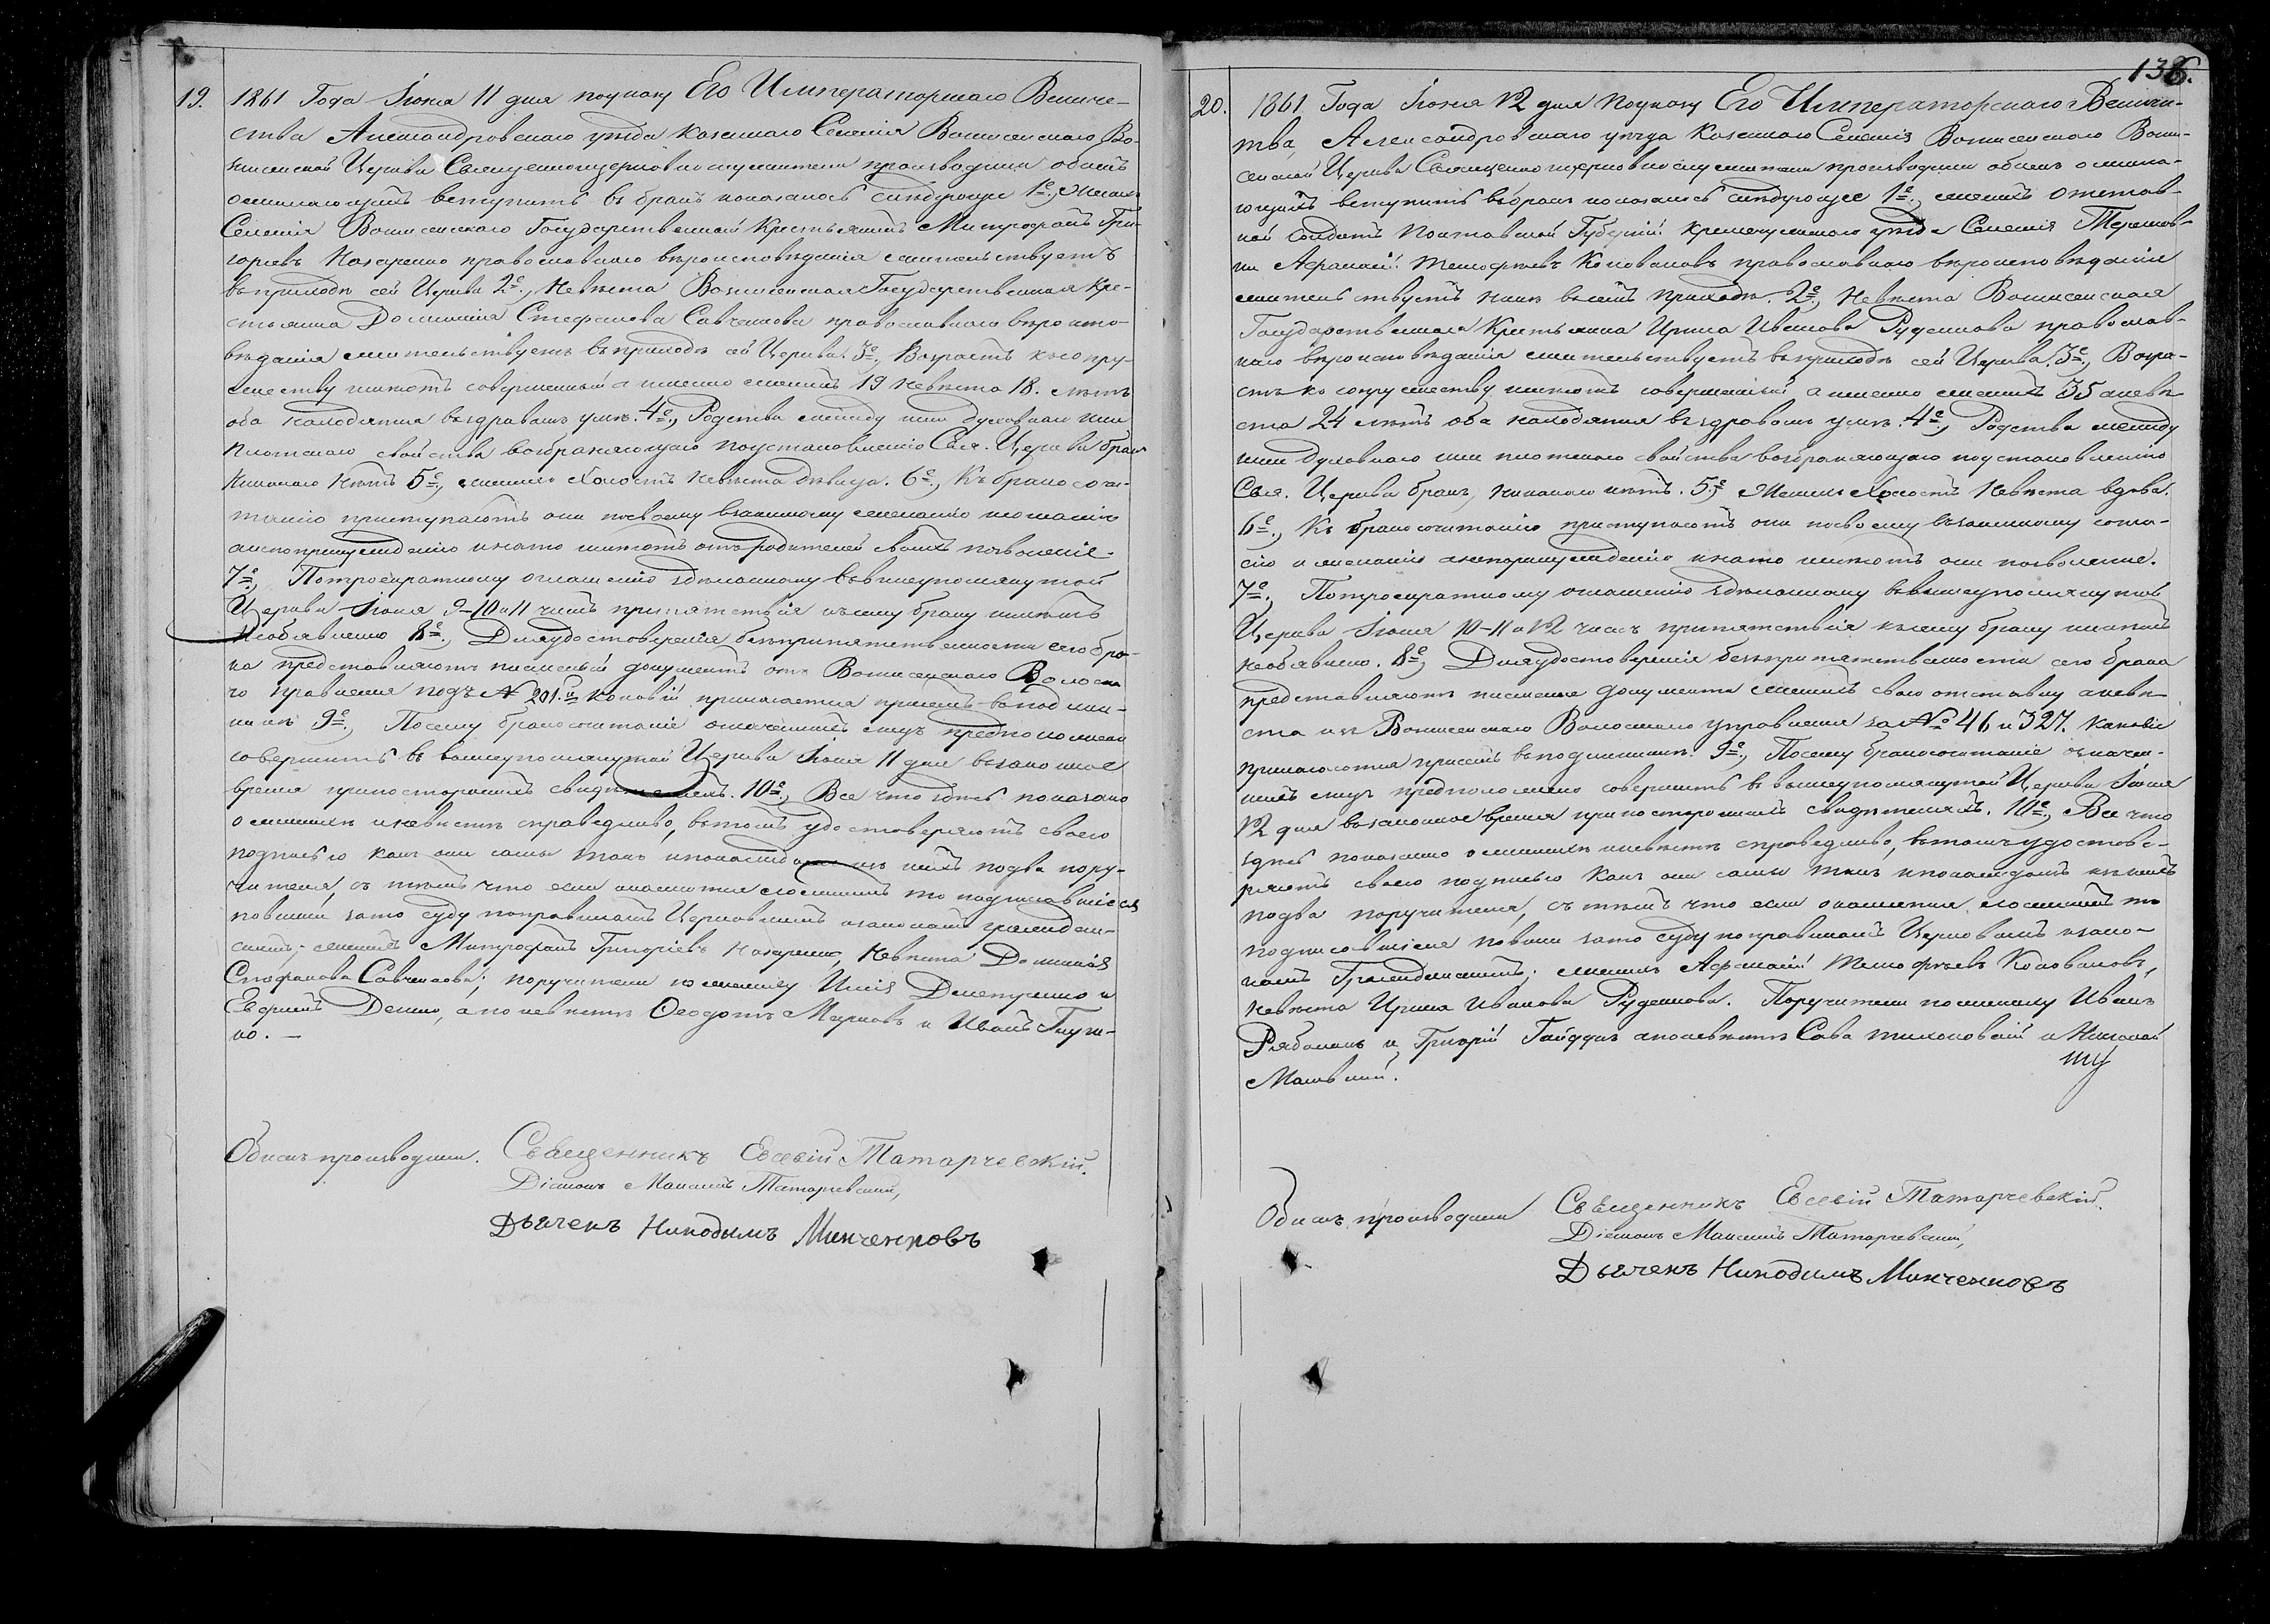 19. 1861 Года Іюня 11 дня поуказу Его Императорскаго Величе-
ства Александровскаго уѣзда казеннаго Селенія Вознесенскаго Воз-
несенской Церкви Священноцерковнослужители производили обыскъ
о желающихъ вступить въ бракъ и оказалось слѣдующее 1е., Женихъ
Селенія Вознесенскаго Государственный Крестьянинъ Митрофанъ Гри-
горіевъ Назаренко православнаго вѣроисповѣданія жительствуетъ
въ приходѣ сей Церкви 2е., Невѣста Вознесенская Государственная Кре-
стьянка Домникія Стефанова Савченкова православнаго вѣроиспо-
вѣданія жительствуетъ въ приходѣ сей Церкви. 3е., Возрастъ къ супру-
жеству имѣютъ совершенный а именно женихъ 19 невѣста 18. лѣтъ
оба находятся въ здравомъ умѣ. 4е., Родства между ими духовнаго или
плотскаго свойства возбраняющаго поустановленію Свя. Церкви бракъ
никакого нѣтъ 5е., женихъ Холостъ невѣста дѣвица. 6е., Къ бракосоче-
танію приступаютъ они посвоему взаимному желанію и согласію
а непопринужденію и нато имѣютъ отъ родителей своихъ позволеніе.
7е., Потроекратному оглашенію здѣланному въ вышеупомянутой
Церкви Іюня 9-10 и 11 чиселъ припятствія къ сему браку никѣмъ
необявлено 8е., Для удостовѣренія безпрепятственности сего бра-
ка представляютъ писменый документъ отъ Вознесенскаго Волостна-
го правленія подъ № 201.й каковый прилагается при семъ въ подлин-
никѣ 9е., Посему бракосочетаніе означенныхъ лицъ предположено
совершить въ вышеупомянутой Церкви Іюня 11 дня въ законное
время при постороннихъ свидѣтеляхъ. 10е., Все что здѣсь показано
о женихѣ и невѣстѣ справедливо, въ томъ удостовѣряютъ своею
подписью какъ они сами такъ и покаждому изъ нихъ подва пору-
чителя, съ тѣмъ что если окажется ложнымъ то подписавшіеся
повинны зато суду поправиламъ Церковнымъ и законамъ граждан-
скимъ; женихъ Митрофанъ Григоріевъ Назаренко, Невѣста Домникія
Стефанова Савченкова; поручители по женихѣ Илія Дмитренко и
Евфимъ Денко, а по невѣстѣ Ѳеодотъ Марковъ и Иванъ
но. —
Обыскъ производили. Священникъ Евсевій Татарчевскій.
Діаконъ Максимъ Татарчевскій,
Дьячекъ Никодимъ Минченковъ
138.
20. 1861. Года Іюня 12 дня Поуказу Его Императорскаго Величе-
тва, Александровскаго уѣзда Казеннаго Селенія Вознесенскаго Возне-
сенской Церкви Священноцерковнослужители производили обыскъ о жела-
ющихъ вступить въ бракъ и оказалось слѣдующее 1е., женихъ Отстав-
ной Солдатъ Полтавской Губерніи Кременчугскаго уѣзда Селенія
Афанасій Тимофѣевъ Коноваловъ православнаго вѣроисповѣданія
жительствуетъ нынѣ въ семъ приходѣ. 2е., Невѣста Вознесенская
Государственная Крестьянка Ирина Иванова Руденкова православ-
наго вѣроисповѣданія жительствуетъ въ приходѣ сей Церкви. 3е., Возра-
стъ къ супружеству имѣютъ совершенный а именно женихъ 35 а невѣ-
ста 24 лѣтъ оба находятся въ здравомъ умѣ. 4е., Родства между
ими духовнаго или плотскаго свойства возбраняющаго поустановленію
Свя. Церкви бракъ, никакого нѣтъ. 5е., Женихъ Холостъ Невѣста вдова.
6е., Къ бракосочетанію приступаютъ они посвоему взаимному согла-
сію и желанію а непопринужденію и нато имѣютъ они позволеніе.
7е., Потроекратному оглашенію здѣланному въ вышеупомянутой
Церкви Іюня 10-11 и 12 чиселъ припятствія къ сему браку никѣмъ
необявлено. 8е., Для удостовѣренія безпрепятственности сего брака
представляютъ писменые документы женихъ свою отставку а невѣ-
ста изъ Вознесенскаго Волостнаго управленія за № 46 и 327. Каковые
прилагаются при семъ въ подлинникѣ. 9е., Посему бракосочетаніе означен-
ныхъ лицъ предположено совершить въ вышеупомянутой Церкви Іюня
12 дня въ законное время при постороннихъ свидѣтеляхъ. 10е., Все что
здѣсь показано о женихѣ и невѣстѣ справедливо, въ томъ удостовѣ-
ряютъ своею подписью какъ они сами такъ и покаждомъ изъ нихъ
подва поручителя, съ тѣмъ что если окажется ложнымъ то
подписавшіеся повинны зато суду поправиламъ Церковнымъ и зако-
намъ Гражданскимъ; женихъ Афанасій Тимофѣевъ Коноваловъ,
невѣста Ирина Иванова Руденкова. Поручители по женихѣ Иванъ
Рябоконь и Григорій Гайдукъ а по невѣстѣ Сава и Николай
Обыскъ производили Священникъ Евсевій Татарчевскій.
Діаконъ Максимъ Татарчевскій,
Дьячекъ Никодимъ Минченковъ